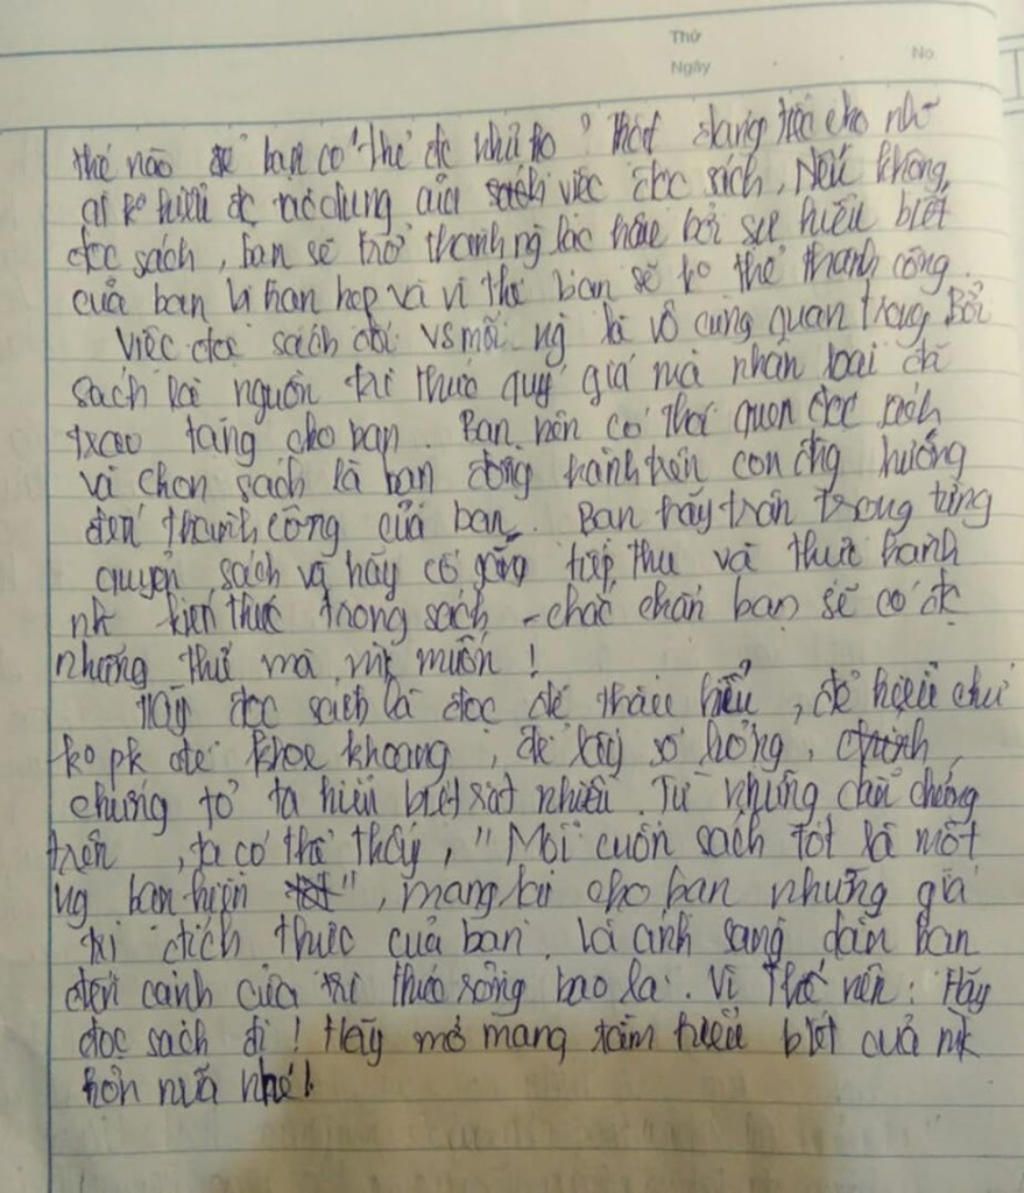 Thứ
Ngày
No
thế nào để bạn có thể đc như họ? Thật đáng trách cho nh~
ai ko hiểu đc tác dụng của việc đọc sách. Nếu không
đọc sách, bạn sẽ trở thành ng lạc hậu bởi sự hiểu biết
của bạn là hạn hẹp và vì thế bạn sẽ ko thể thành công.
Việc đọc sách đối vs mỗi ng là vô cùng quan trọng. Bởi
sách là nguồn tri thức quý giá mà nhân loại đã
trao tặng cho bạn. Bạn nên có thói quen đọc sách
và chọn sách là bạn đồng hành trên con đng hướng
đến thành công của bạn. Bạn hãy trân trọng từng
quyển sách và hãy cố gắng tiếp thu và thực hành
nh kiến thức trong sách - chắc chắn bạn sẽ có đc
những thứ mà mk muốn!
Hãy đọc sách là đọc để thấu hiểu, để hiểu chứ
ko pk để khoe khoang, để lấy số lượng,
chứng tỏ ta hiểu biết rất nhiều. Từ những dẫn chứng
trên, ta có thể thấy, "Mỗi cuốn sách tốt là một
ng bạn hiền", mang lại cho bạn những giá
trị đích thực của bạn. Là ánh sáng dẫn bạn
đến cánh cửa tri thức rộng bao la. Vì thế nên: Hãy
đọc sách đi! Hãy mở mang tầm hiểu biết của mk
hơn nữa nhé!